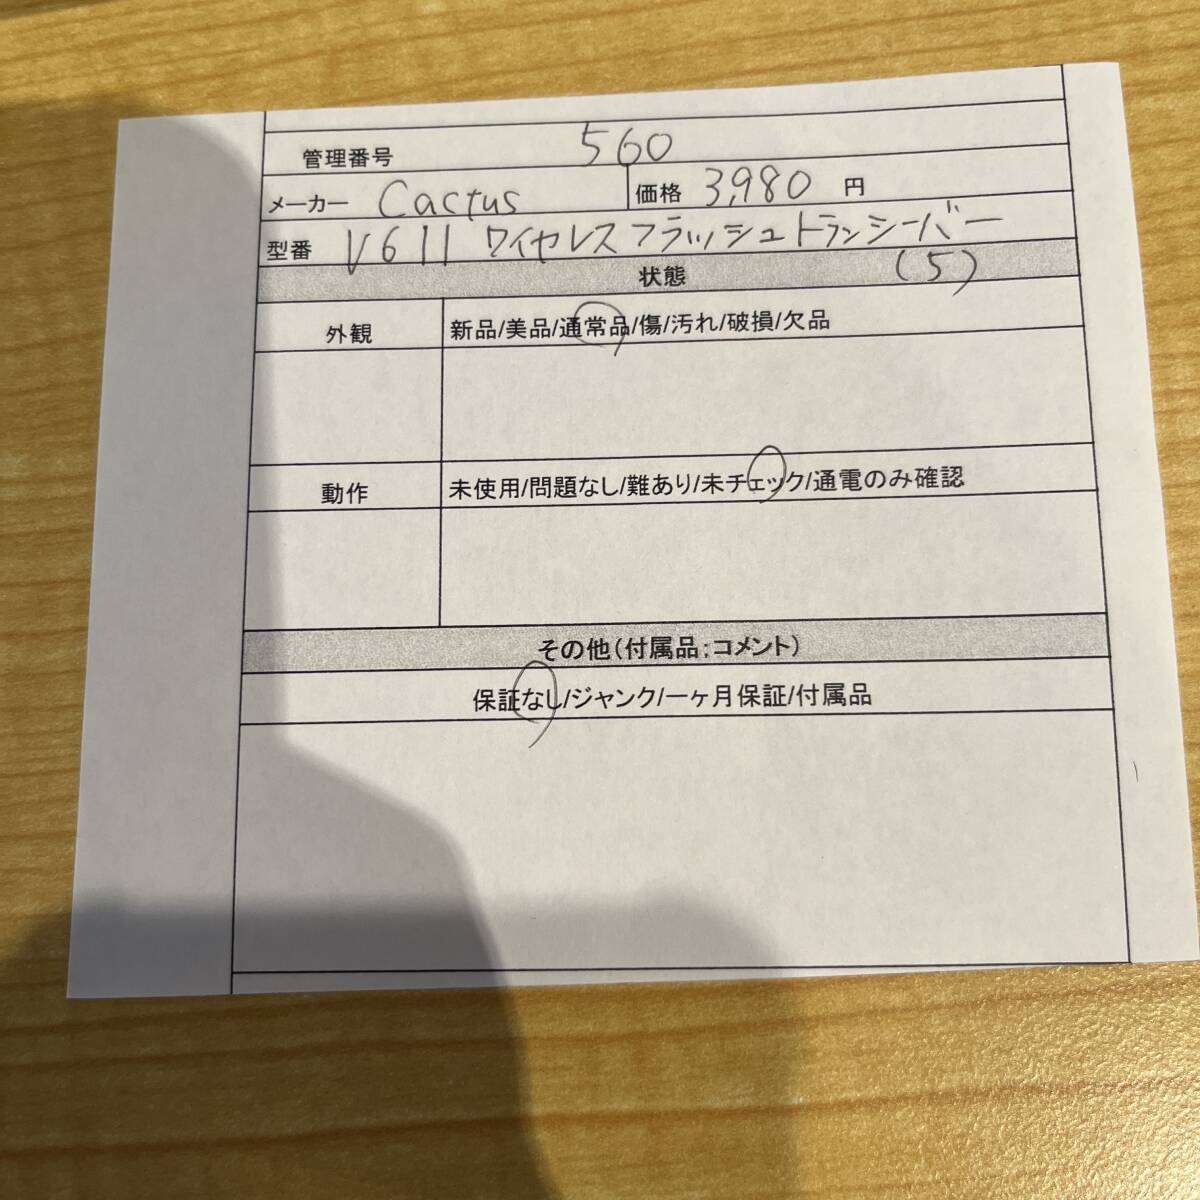 管理番号 560
メーカー Cactus 価格 3,980 円
型番 V6II ワイヤレスフラッシュトランシーバー
(5)
状態
外観 新品/美品/通常品/傷/汚れ/破損/欠品
動作 未使用/問題なし/難あり/未チェック/通電のみ確認
その他(付属品:コメント)
保証なし/ジャンク/一ヶ月保証/付属品